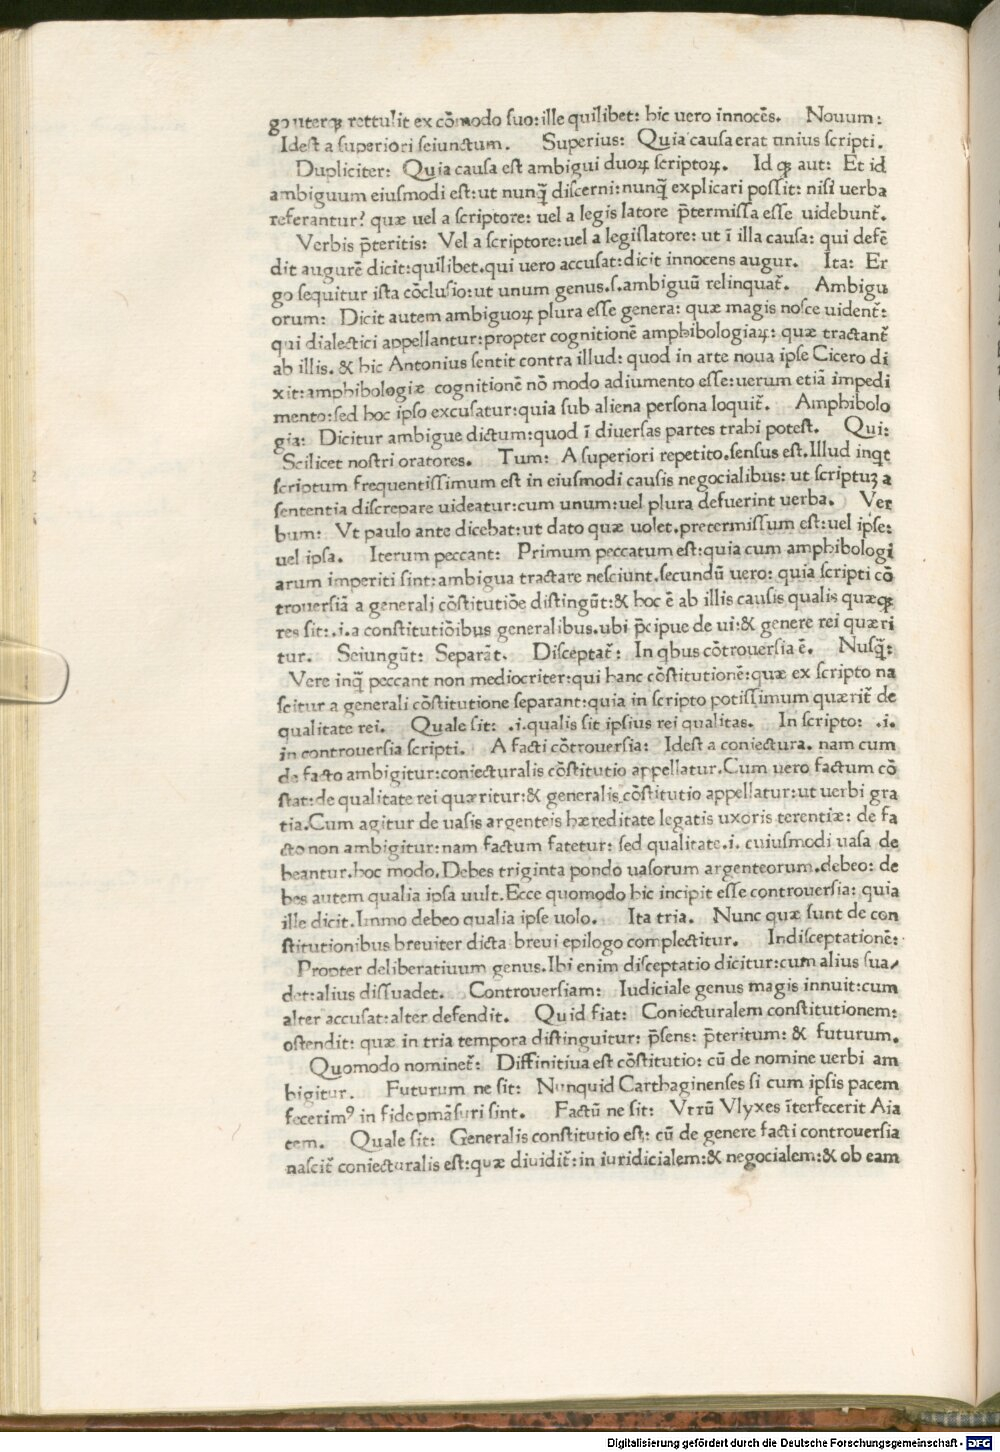 go uterqꝫ rettulit ex cōmodo suo: ille quilibet: hic uero innocēs. Nouum:
Idest a superiori seiunctum. Superius: Quia causa erat unius scripti.
Dupliciter: Quia causa est ambigui duoꝝ scriptoꝝ. Id qꝫ aut: Et id
ambiguum eiusmodi est: ut nunq̄ discerni: nunq̄ explicari possit: nisi uerba
referantur? quæ uel a scriptore: uel a legis latore p̄termissa esse uidebunt̄.
Verbis p̄teritis: Vel a scriptore: uel a legislatore: ut ī illa causa: qui defē
dit augurē dicit: quilibet. qui uero accusat: dicit innocens augur. Ita: Er
go sequitur ista cōclusio: ut unum genus .s. ambiguū relinquat̄. Ambigu
orum: Dicit autem ambiguoꝝ plura esse genera: quæ magis nosce uident̄:
qui dialectici appellantur: propter cognitionē amphibologiaꝝ: quæ tractant̄
ab illis. & hic Antonius sentit contra illud: quod in arte noua ipse Cicero di
xit: amphibologiæ cognitionē nō modo adiumento esse: uerum etiā impedi
mento: sed hoc ipso excusatur: quia sub aliena persona loquit̄. Amphibolo
gia: Dicitur ambigue dictum: quod ī diuersas partes trahi potest. Qui:
Scilicet nostri oratores. Tum: A superiori repetito. sensus est. Illud inqt
scriptum frequentissimum est in eiusmodi causis negocialibus: ut scriptuꝫ a
sententia discrepare uideatur: cum unum: uel plura defuerint uerba. Ver
bum: Vt paulo ante dicebat: ut dato quæ uolet. pretermissum est: uel ipse:
uel ipsa. Iterum peccant: Primum peccatum est: quia cum amphibologi
arum imperiti sint: ambigua tractare nesciunt. secundū uero: quia scripti cō
trouersiā a generali cōstitutiōe distingūt: & hoc ē ab illis causis qualis quæqꝫ
res sit: .i. a constitutiōibus generalibus. ubi p̄cipue de ui: & genere rei quæri
tur. Seiungūt: Separāt. Disceptat̄: In qbus cōtrouersia ē. Nusq̄:
Vere inq̄ peccant non mediocriter: qui hanc cōstitutionē: quæ ex scripto na
scitur a generali cōstitutione separant: quia in scripto potissimum quærit̄ de
qualitate rei. Quale sit: .i. qualis sit ipsius rei qualitas. In scripto: .i.
in controuersia scripti. A facti cōtrouersia: Idest a coniectura. nam cum
de facto ambigitur: coniecturalis cōstitutio appellatur. Cum uero factum cō
stat: de qualitate rei quæritur: & generalis cōstitutio appellatur: ut uerbi gra
tia. Cum agitur de uasis argenteis hæreditate legatis uxoris terentiæ: de fa
cto non ambigitur: nam factum fatetur: sed qualitate .i. cuiusmodi uasa de
beantur. hoc modo. Debes triginta pondo uasorum argenteorum. debeo: de
bes autem qualia ipsa uult. Ecce quomodo hic incipit esse controuersia: quia
ille dicit. Immo debeo qualia ipse uolo. Ita tria. Nunc quæ sunt de con
stitutionibus breuiter dicta breui epilogo complectitur. Indisceptationē:
Propter deliberatiuum genus. Ibi enim disceptatio dicitur: cum alius sua/
det: alius dissuadet. Controuersiam: Iudiciale genus magis innuit: cum
alter accusat: alter defendit. Quid fiat: Coniecturalem constitutionem:
ostendit: quæ in tria tempora distinguitur: p̄sens: p̄teritum: & futurum.
Quomodo nominet̄: Diffinitiua est cōstitutio: cū de nomine uerbi am
bigitur. Futurum ne sit: Nunquid Carthaginenses si cum ipsis pacem
fecerimꝰ in fide pmāsuri sint. Factū ne sit: Vtrū Vlyxes īterfecerit Aia
cem. Quale sit: Generalis constitutio est: cū de genere facti controuersia
nascit̄ coniecturalis est: quæ diuidit̄: in iuridicialem: & negocialem: & ob eam
Digitalisierung gefördert durch die Deutsche Forschungsgemeinschaft - DFG